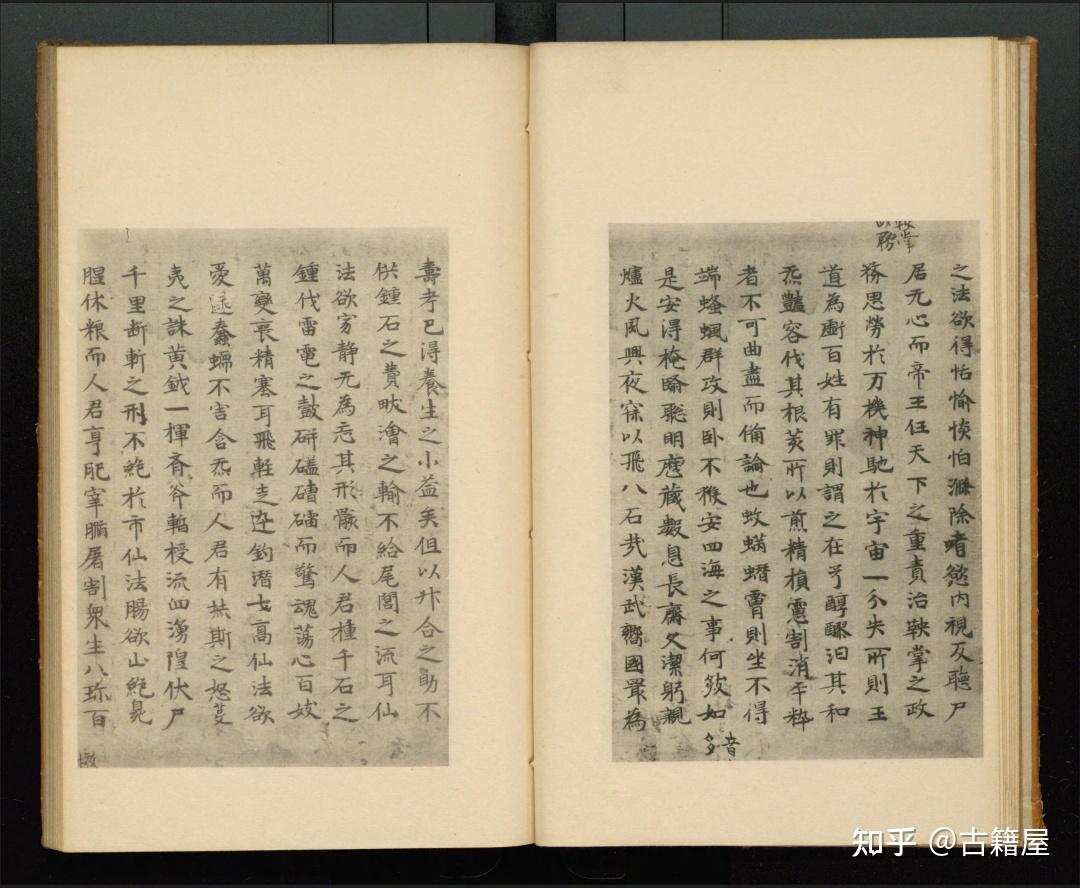 之法欲得恬愉憺怕滌除嗜慾内視反聽尸
居无心而帝王任天下之重責治鞅掌之政
務思勞於万機神馳於宇宙一介失所則王
道為虧百姓有罪則謂之在予醇醪汩其和
炁豔容伐其根荄所以煎精損慮割消平粹
者不可曲盡而俻論也蚊膚則坐不得
端蚤虱群攻則卧不獲安四海之事何如
是安得掩翳聡明歷藏數息長齋久潔躬親
爐火夙興夜寐以飛八石哉漢武嚮國最為
壽考已得養生之小益矣但以升合之助不
供鍾石之費畎澮之輸不給尾閭之流耳仙
法欲穷静无為忘其形骸而人君種千石之
鍾伐雷電之鼓砰磕磧礌而驚魂荡心百妓
萬變喪精塞耳飛軽走迅釣潜弋高仙法欲
愛逮蠢蠕不害含炁而人君有赫斯之怒芟
夷之誅黄鉞一揮斉斧暫授流血滂隍伏尸
千里斷斬之刑不絶於市仙法腸欲止絶臰
腥休粮而人君亨肥宰腯屠割衆生八珎百
知乎 @古籍屋